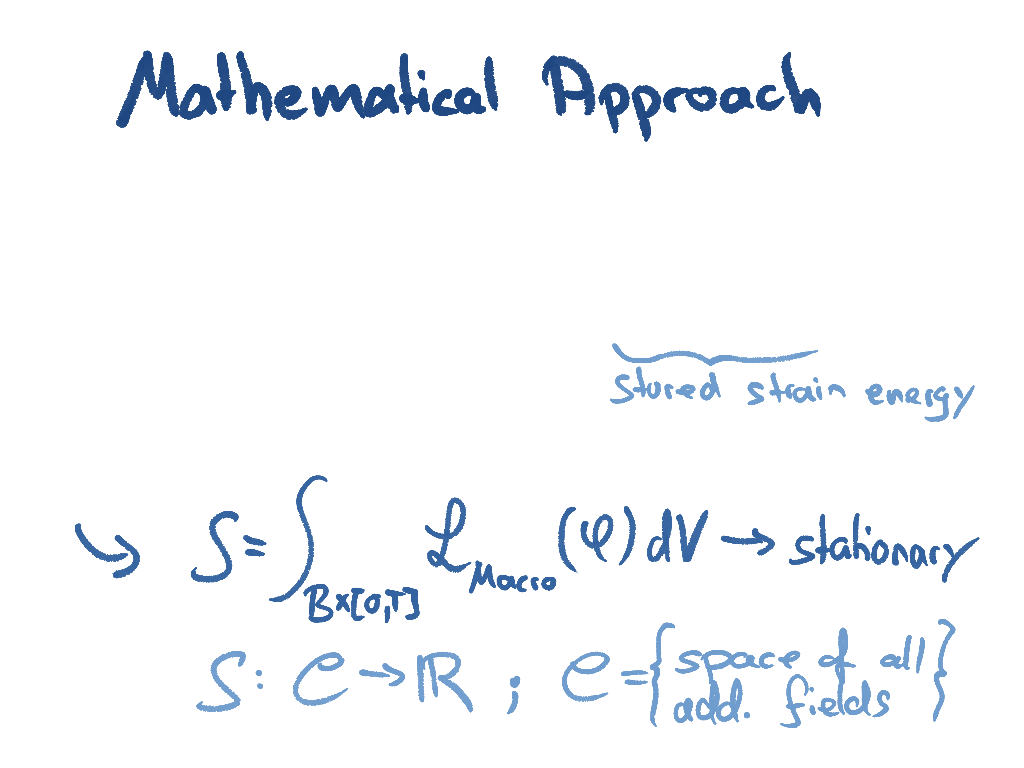 Mathematical Approach
stored strain energy
↪ S = ∫_{B×[0,T]} ℒ_{Macro} (φ) dV → stationary
S: 𝒞 → ℝ ; 𝒞 = { space of all add. fields }